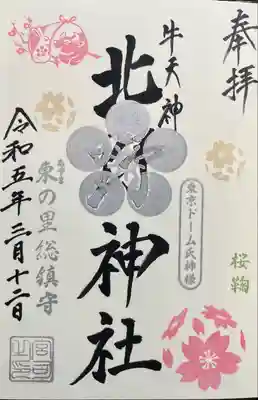 奉拝
牛天神
北野神社
東京ドーム氏神様
桜鞠
あずま
東の里総鎮守
令和五年三月十二日